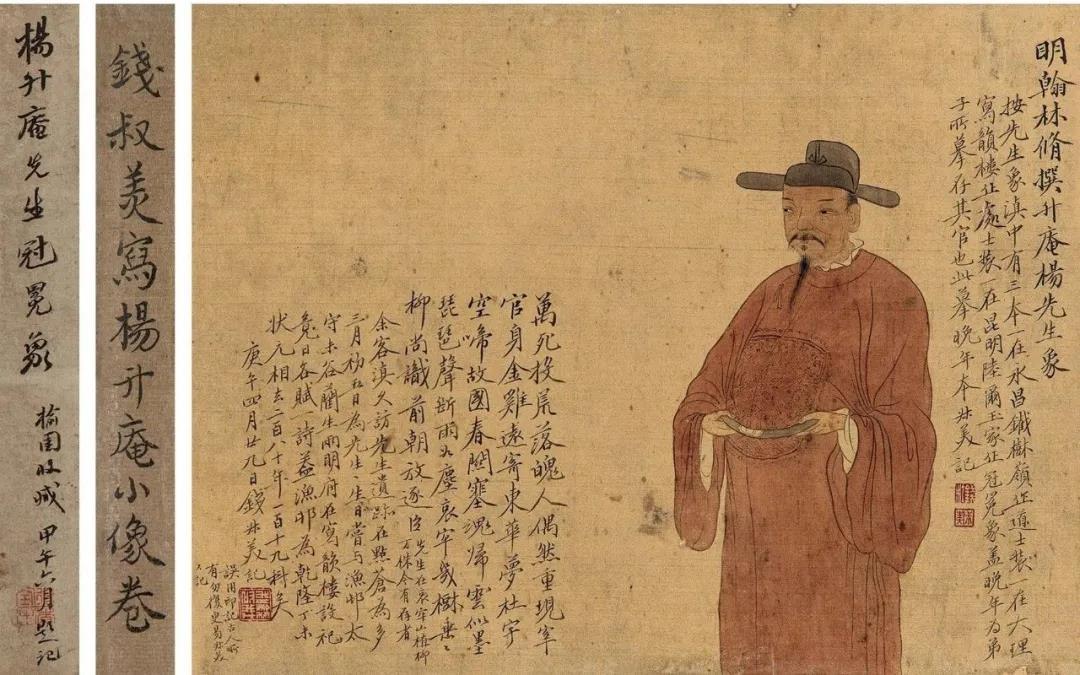 明翰林脩撰升庵楊先生象
按先生象滇中有三本一在永昌鐵樹嶺作道士裝一在大理
寫韻樓作處士裝一在昆明陸爾玉家作冠冕象蓋晚年為弟
子所摹存其官也此摹晚年本叔美記
萬死投荒落魄人偶然重現宰
官身金雞遠寄東華夢杜宇
空啼故國春關塞魂歸雲似墨
琵琶聲斷雨如塵哀牢幾樹垂垂
柳尚識前朝放逐臣先生在哀牢山植柳百株今有存者
余客滇久訪先生遺跡在點蒼為多
三月初五日為先生生日嘗與漁邨太
守未谷藺生兩明府在寫韻樓設祀
竟日各賦一詩蓋漁邨為乾隆丁未
狀元相去二百八十年一百十九科矣
庚午四月廿九日錢叔美記
誤用印記古人所
有勿復更易叔美
又記
錢叔美寫楊升庵小像卷
楊升庵先生冠冕象
榆園收藏甲午六月題記